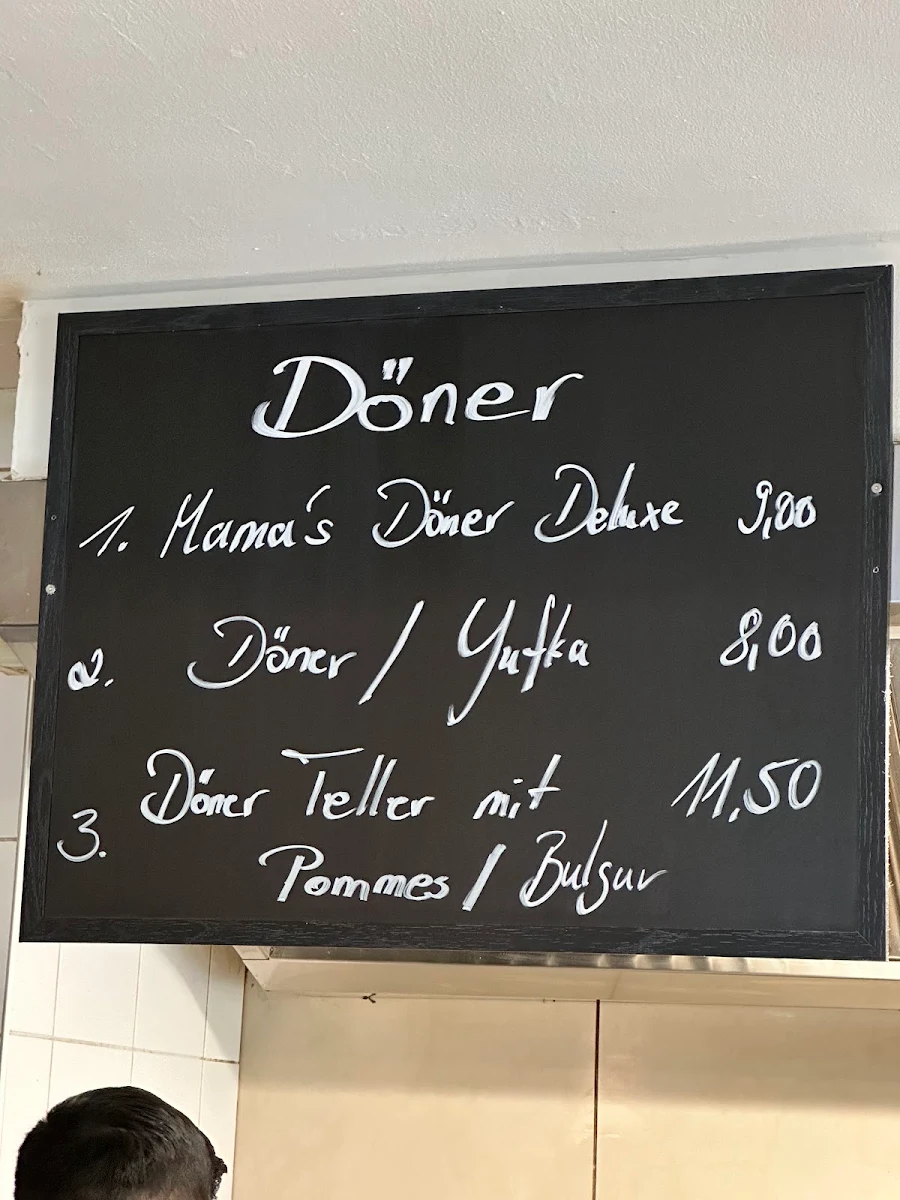 Döner
1. Mama's Döner Deluxe 9,00
2. Döner / Yufka 8,00
3. Döner Teller mit 11,50
Pommes / Bulgur